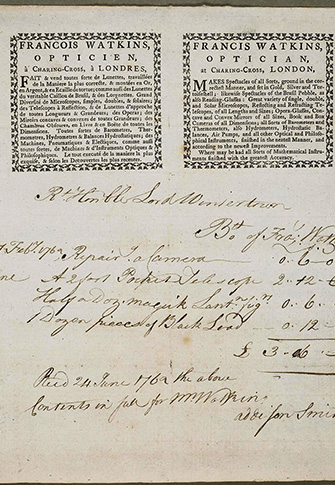 FRANCOIS WATKINS,
OPTICIEN,
à CHARING-CROSS, à LONDRES,
FAIT & vend toutes sorte de Lunettes, travaillées
de la Maniere la plus correcte, & montées en Or,
en Argent, & en Ecaille de tortue; comme aussi des Lunettes
du veritable Caillou de Bresil, & des Lorgnettes. Grand
Diversité de Microscopes, simples, doubles, & solaires;
& des Telescopes à Reflêction, & de Lunettes d'Approche
de toutes Longueurs & Grandeurs; des Operas; des
Miroirs concaves & convexes de toutes Grandeurs; des
Chambres Obscures, en Livre & en Boëte de toutes les
Dimensions. Toutes sorte de Barometres, Thermo-
metres, Hydrometres & Balances Hydrostatiques; des
Machines, Pneumatiques & Electriques, comme aussi
toutes sortes de Machines & d'Instruments Optiques &
Philosophiques. Le tout executé de la maniere la plus
exacte, & selon les Decouvertes les plus recentes.
FRANCIS WATKINS,
OPTICIAN,
at CHARING-CROSS, LONDON,
MAKES Spectacles of all Sorts, ground in the cor-
rectest Manner, and set in Gold, Silver and Tor-
toiseshell; likewise Spectacles of the Brasil Pebble, al-
so Reading-Glasses: Great variety of single, double,
and Solar Microscopes, Reflecting and Refracting Te-
lescopes, of all Lengths and Sizes; Opera Glasses, Con-
cave and Convex Mirrors of all Sizes, Book and Box
Cameras of all Dimensions; all Sorts of Barometers and
Thermometers, also Hydrometers, Hydrostatic Ba-
lances, Air Pumps, and all other Optical and Philoso-
phical Instruments, finished in the neatest Manner, and
according to the newest Improvements.
Where may be had all Sorts of Mathematical Instru-
ments finished with the greatest Accuracy.
Rt Honble Lord Winterton
Bt of Fra: Watk
Febr 1762 Repair'g a Camera 0 . 6 . 0
A 2 foot Pocket Telescope 2 . 12 . 6
Half a Doz magick Lant 0 . 6 .
1 Dozen pieces of Black Lead 0 . 12
£ 3 . 6
Recd 24 June 1762 the above
Contents in full for Mr Watkins
Addison Smi